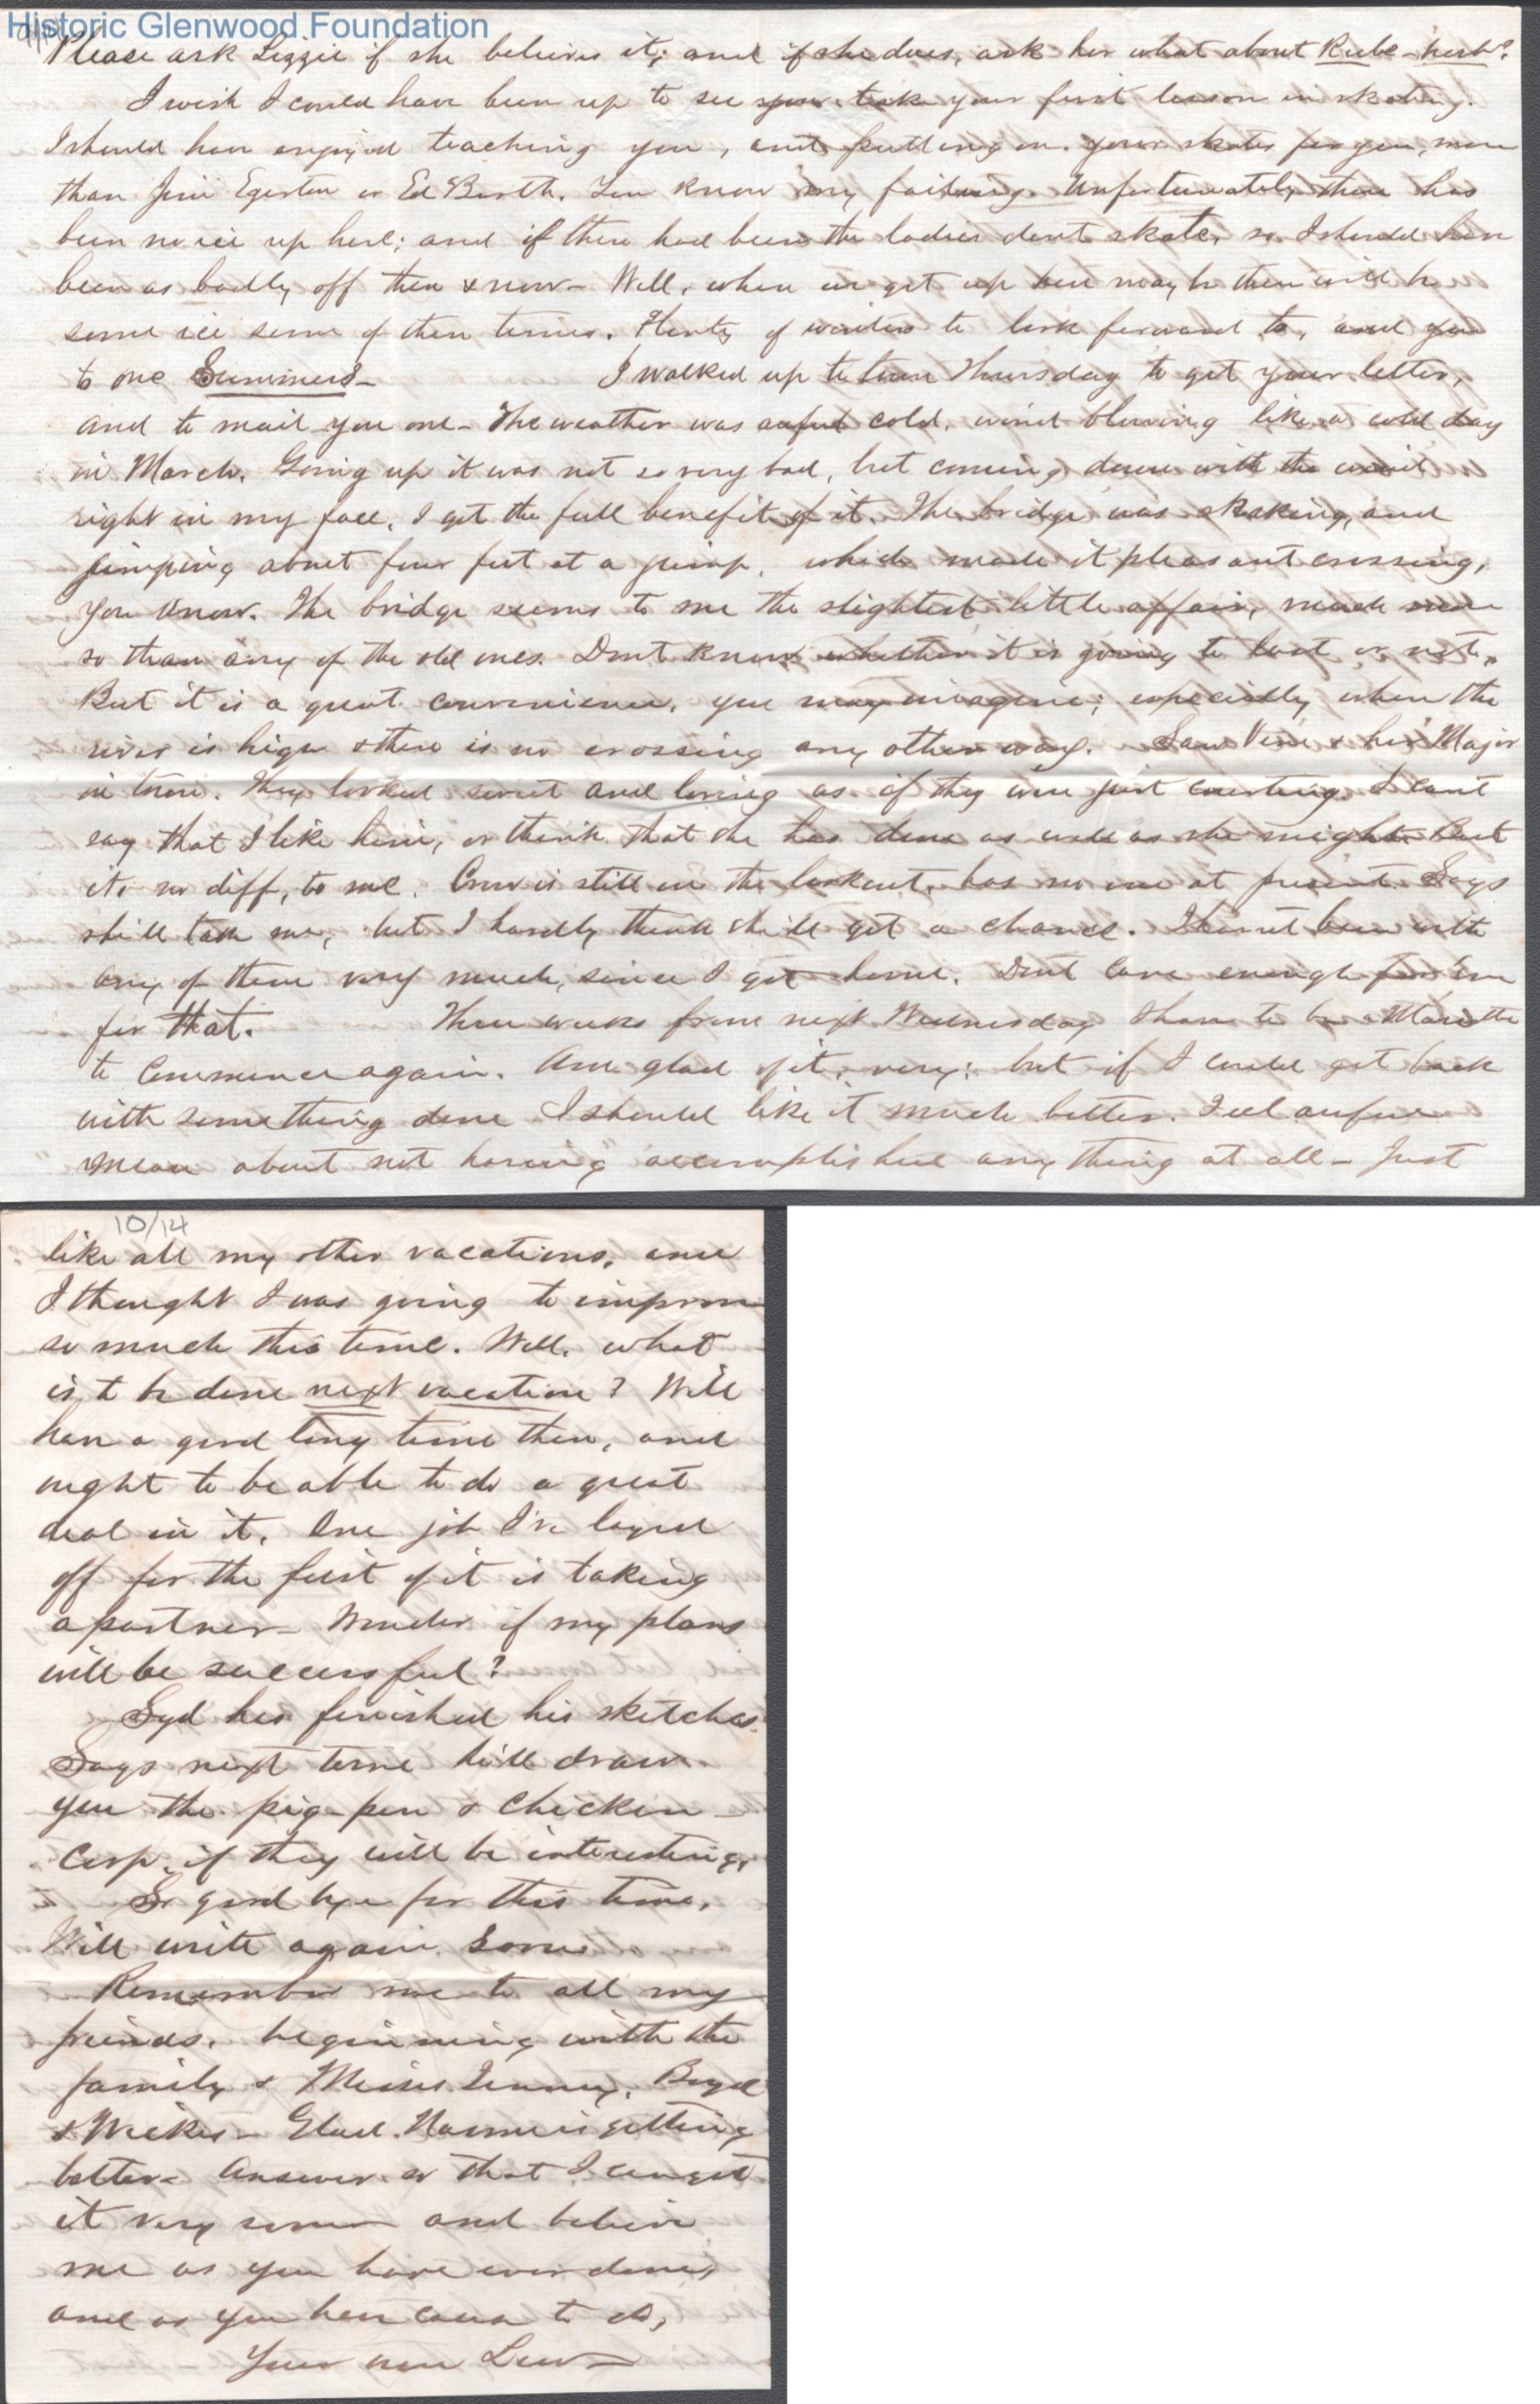 Historic Glenwood Foundation
Please ask Lizzie if she believes it; and if she does, ask her what about Rube
I wish I could have been up to see you take your first lesson in skating.
I should have enjoyed teaching you, and putting on your skates for you, more
than Jim Egerton or Ed Birth. You know my failing. Unfortunately there has
been no ice up here; and if there had been the ladies dont skate, so I should have
been as badly off then & now— Well, when we get up here maybe there will be
some ice some of these times. Plenty of winters to look forward to, and you
to one Summers— I walked up to town Thursday to get your letter,
and to mail you one— The weather was awful cold, wind blowing like a cold day
in March. Going up it was not so very bad, but coming down with the wind
right in my face, I got the full benefit of it. The bridge was shaking, and
jumping about four feet at a jump, which made it pleasant crossing,
you know. The bridge seems to me the slightest little affair, much more
so than any of the old ones. Dont know whether it is going to last or not.
But it is a great convenience, you may imagine; especially when the
river is high & there is no crossing any other way. Saw & her Major
in town. They looked sweet and loving as if they were just courting. I cant
say that I like him, or think that she has done as well as she might. But
its no diff, to me. is still on the lookout, has no one at present. Says
she'll take me, but I hardly think she'll get a chance. I havnt been with
any of them very much, since I got home. Dont care enough for 'em
for that. Three weeks from next Wednesday I have to be at Marietta
to commence again. Am glad of it, very; but if I could get back
with something done I should like it much better. Feel awful
mean about not having accomplished any thing at all— Just
10/14
like all my other vacations, and
I thought I was going to improve
so much this time. Well, what
is to be done next vacation? Will
have a good long time then, and
ought to be able to do a great
deal in it. One job I've layed
off for the first of it is taking
a partner— Wonder if my plans
will be successful?
Syd has finished his sketches.
Says next time he'll draw
you the pig-pen & chicken
coop, if they will be interesting.
So good bye for this time.
Will write again soon
Remember me to all my
friends, beginning with the
family & Misses Boyd
& Weekes— Glad is getting
better— Answer so that I can get
it very soon and believe
me as you have ever done,
and as you have cause to do,
Your own Lew—